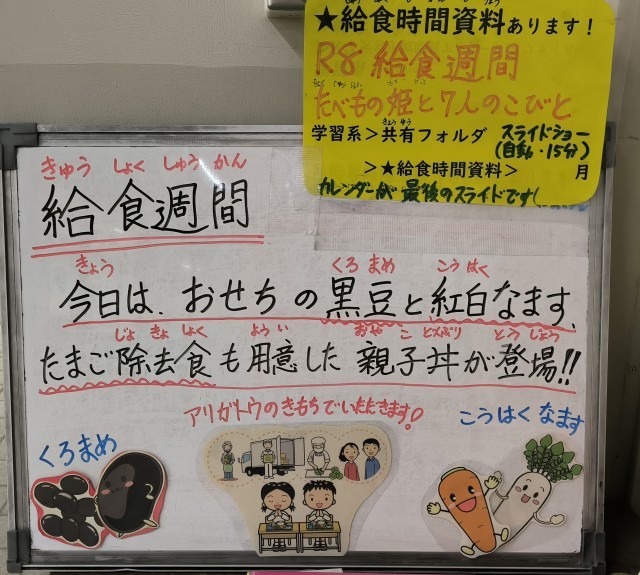 ★給食時間資料あります!
R8 給食週間
たべもの姫と7人のこびと
学習系>共有フォルダ スライドショー
きょうゆう
(自動・15分)
>★給食時間資料> 月
カレンダーが最後のスライドです!
きゅう しょく しゅう かん
給食週間
きょう くろ まめ こう はく
今日は、おせちの黒豆と紅白なます、
じょ きょ しょく ようい おや こ どんぶり とうじょう
たまご除去食も用意した 親子丼が登場!!
アリガトウのきもちでいただきます!
くろまめ
こうはく なます